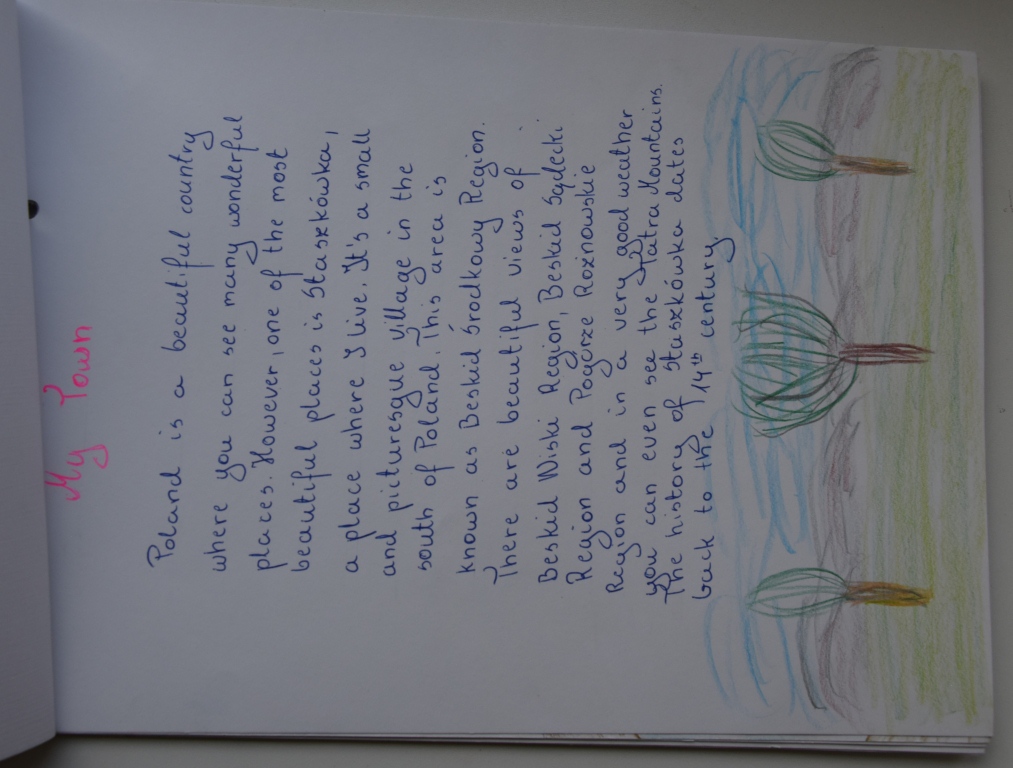 My Town
Poland is a beautiful country
where you can see many wonderful
places. However, one of the most
beautiful places is Staszkówka,
a place where I live. It's a small
and picturesque village in the
south of Poland. This area is
known as Beskid Środkowy Region.
There are beautiful views of
Beskid Niski Region, Beskid Sądecki
Region and Pogórze Rożnowskie
Region and in a very good weather
you can even see the Tatra Mountains.
The history of Staszkówka dates
back to the 14th century